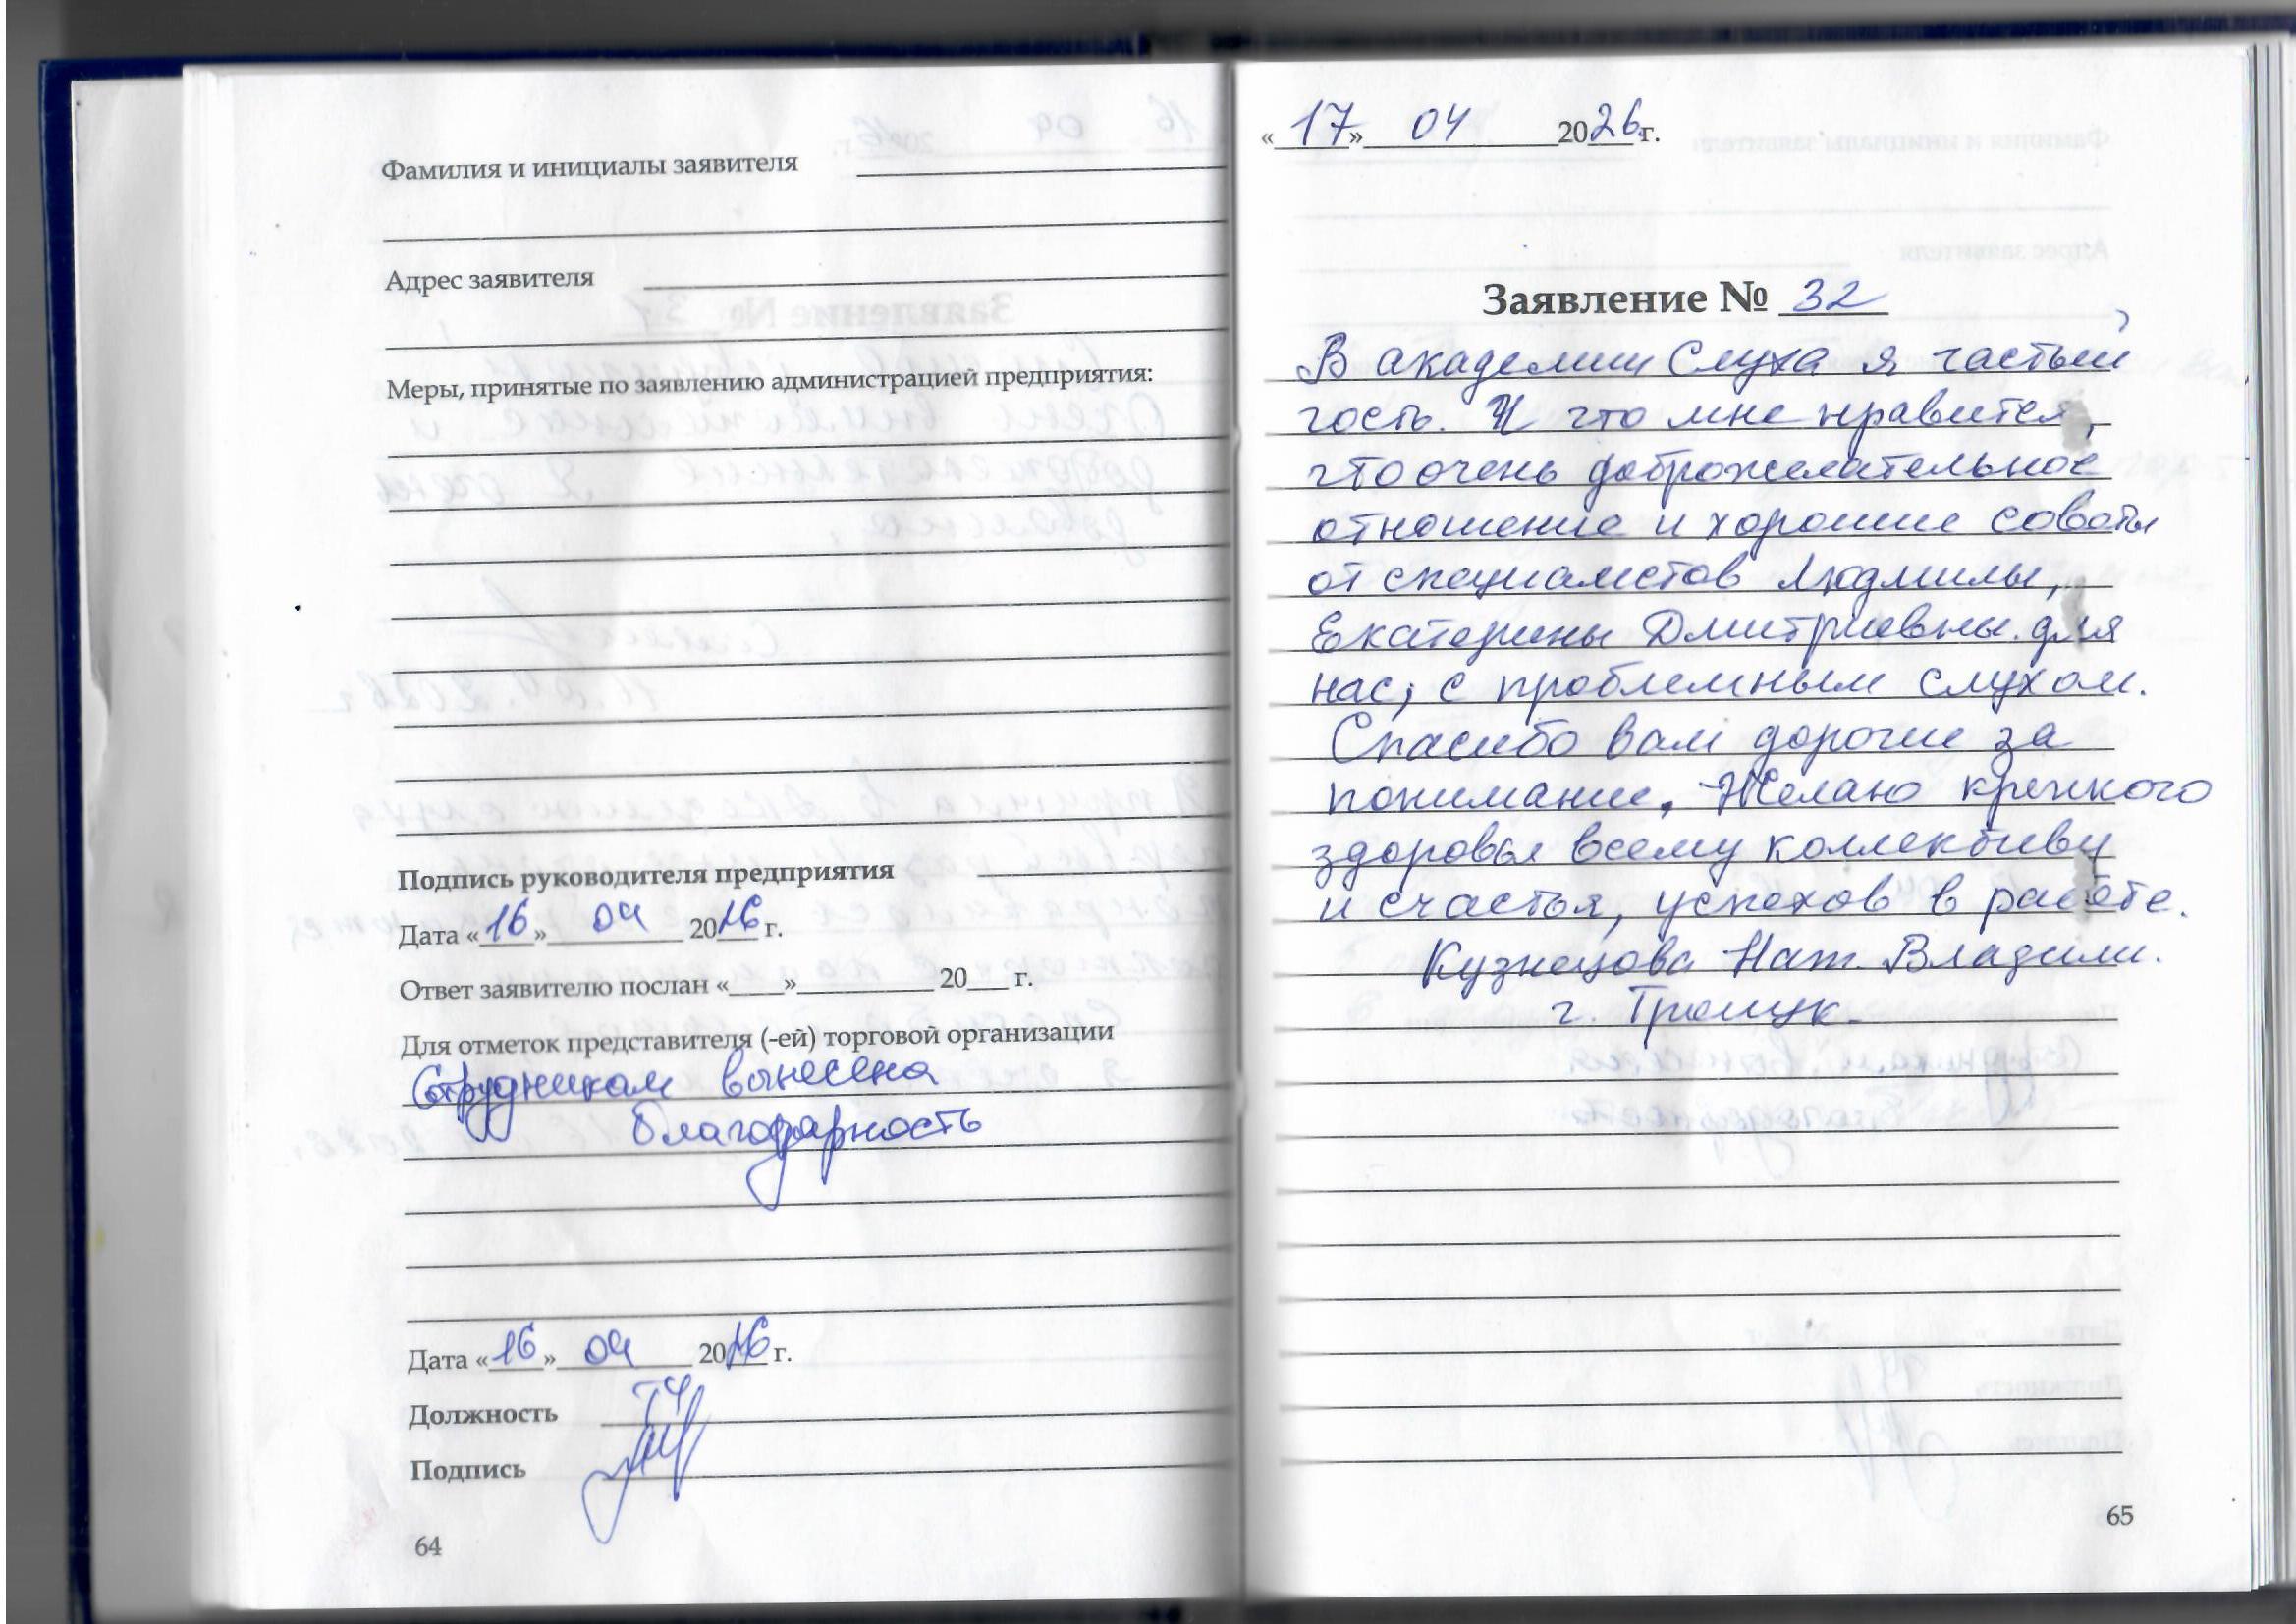 Фамилия и инициалы заявителя
Адрес заявителя
Меры, принятые по заявлению администрацией предприятия:
Подпись руководителя предприятия
Дата «16» 04 2026 г.
Ответ заявителю послан «____»__________ 20___ г.
Для отметок представителя (-ей) торговой организации
Сотрудникам вынесена
благодарность
Дата «16» 04 2026 г.
Должность
Подпись
64
«17» 04 2026 г.
Заявление № 32
В академии Слуха я частый
гость. И что мне нравится,
что очень доброжелательное
отношение и хорошие советы
от специалистов Людмилы,
Екатерины Дмитриевны. для
нас, с проблемным слухом.
Спасибо вам дорогие за
понимание. Желаю крепкого
здоровья всему коллективу
и счастья, успехов в работе.
Кузнецова Нат. Владим.
г.
65